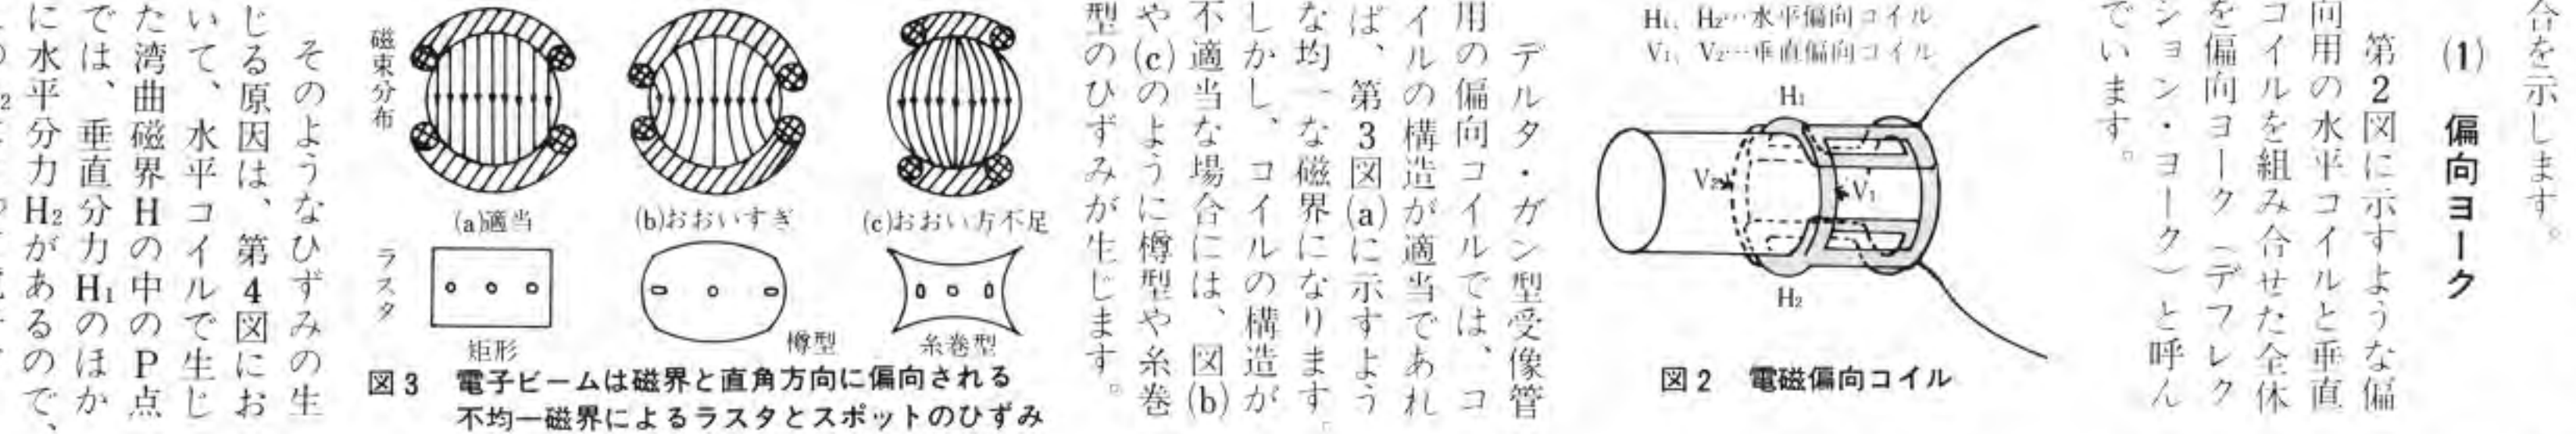 合を示します。
(1) 偏向ヨーク
第2図に示すような偏
向用の水平コイルと垂直
コイルを組み合せた全体
を偏向ヨーク(デフレク
ション・ヨーク)と呼ん
でいます。
H₁、H₂…水平偏向コイル
V₁、V₂…垂直偏向コイル
H₁
V₂
V₁
H₂
図2 電磁偏向コイル
デルタ・ガン型受像管
用の偏向コイルでは、コ
イルの構造が適当であれ
ば、第3図(a)に示すよう
な均一な磁界になります。
しかし、コイルの構造が
不適当な場合には、図(b)
や(c)のように樽型や糸巻
型のひずみが生じます。
磁束分布
(a)適当
(b)おおいすぎ
(c)おおい方不足
ラスタ
矩形
樽型
糸巻型
図3 電子ビームは磁界と直角方向に偏向される
不均一磁界によるラスタとスポットのひずみ
そのようなひずみの生
じる原因は、第4図にお
いて、水平コイルで生じ
た湾曲磁界Hの中のP点
では、垂直分力H₁のほか
に水平分力H₂があるので、